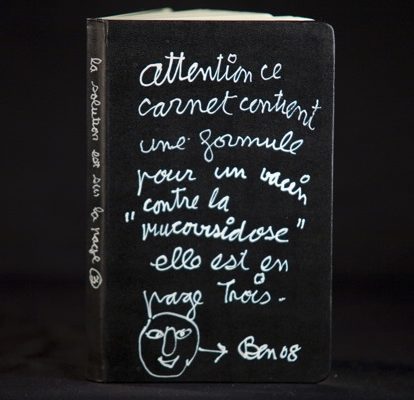 la solution est sur la page 3
attention ce
carnet contient
une formule
pour un vaccin
"contre la
mucovisidose"
elle est en
page Trois -
Ben 08